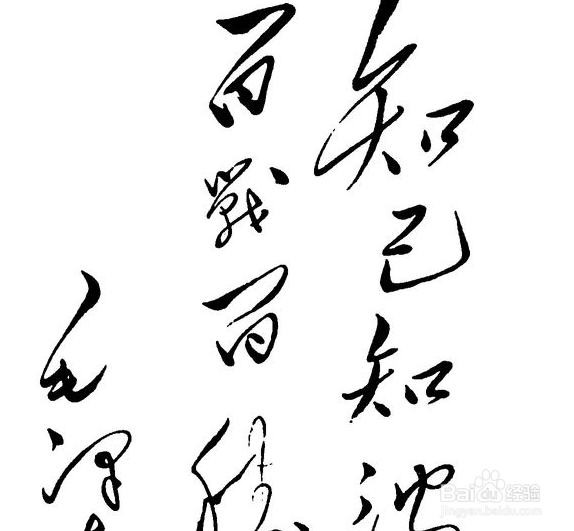 知己知彼
百戰百勝
毛澤东
Baidu经验
jingyan.baidu.com